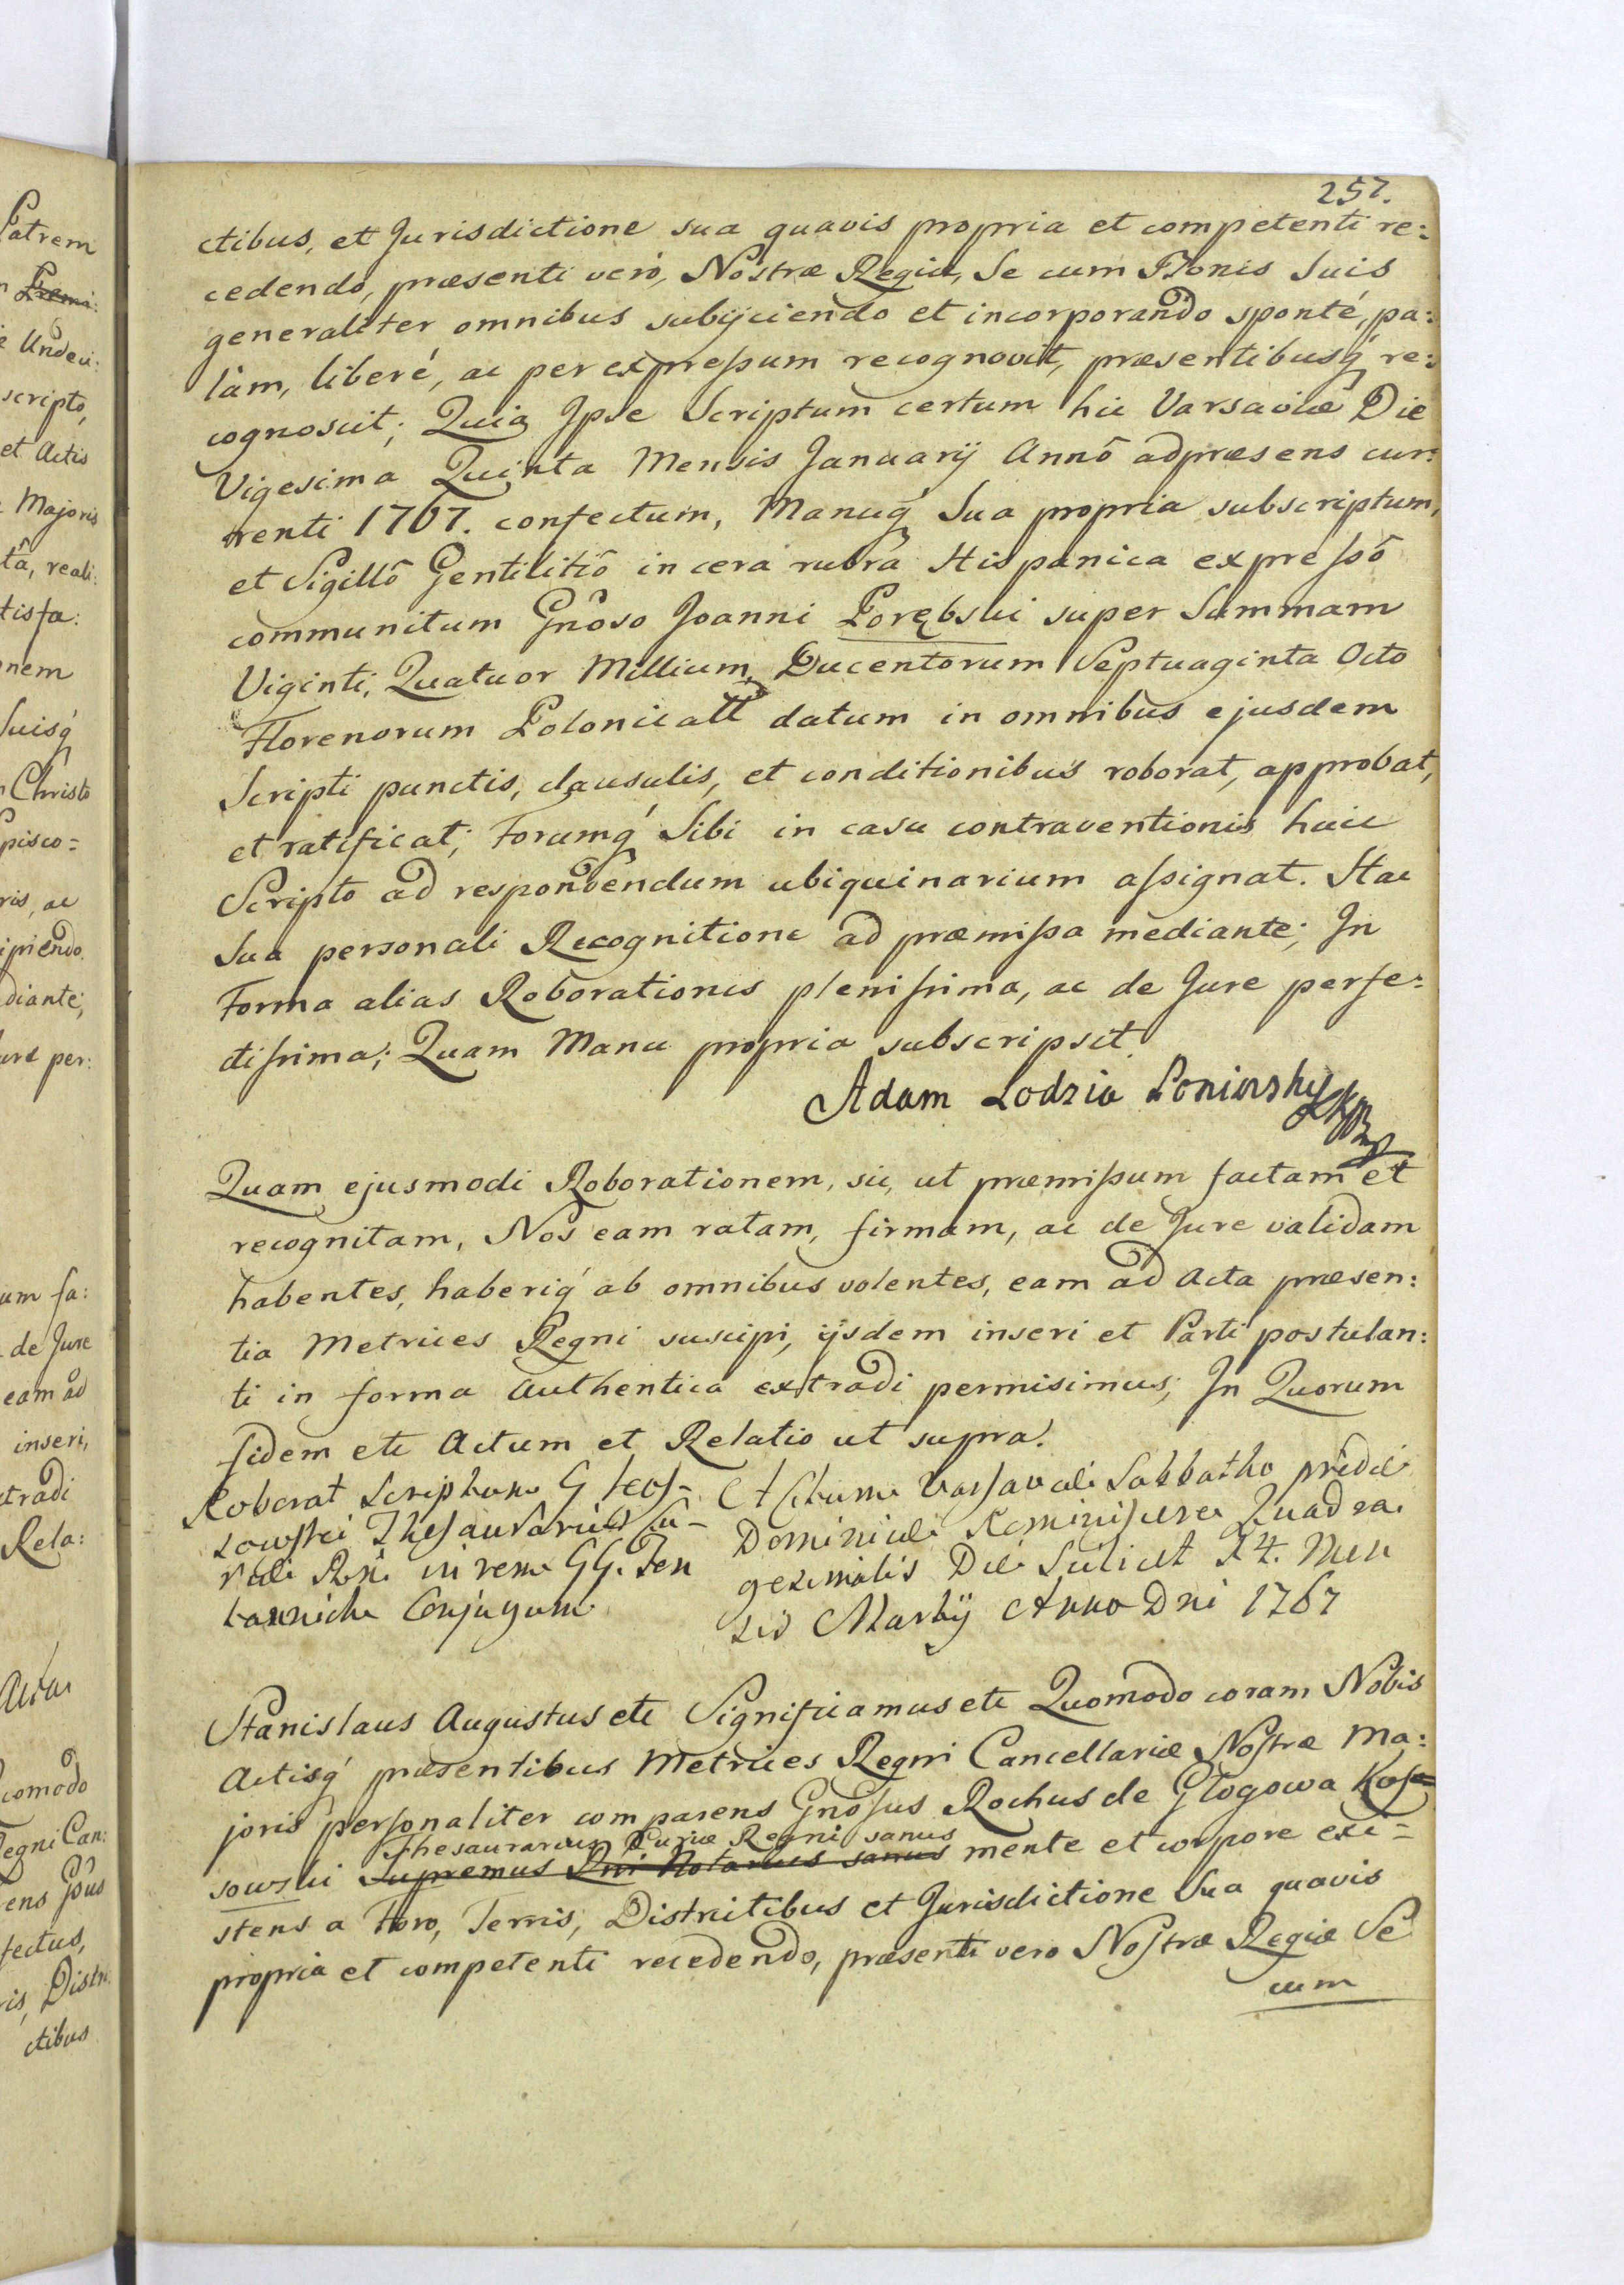 257.
ctibus, et Jurisdictione sua quavis propria et competenti re:
cedendo, præsenti verò, Nostræ Regiæ, Se cum Bonis Suis
generaliter omnibus subijciendo et incorporando sponté, pa:
làm, liberé, ac per expressum recognovit, præsentibusq́ re:
cognoscit; Quia Ipse Scriptum certum hic Varsaviæ Die
Vigesima Quinta Mensis Januarij Annô ad præsens cur:
renti 1767. confectum, Manuq́ Sua propria subscriptum,
et Sigillô Gentilitiô in cera rubra Hispanica expressô
communitum Gnôso Joanni Porębski super Summam
Viginti, Quatuor Millium, Ducentorum Septuaginta Octo
Florenorum Polonicall datum in omnibus ejusdem
Scripti punctis, clausulis, et conditionibus roborat, approbat,
et ratificat; Forumq́ Sibi in casu contraventionis huic
Scripto ad respondendum ubiquinarium assignat. Hac
Sua personali Recognitione ad præmissa mediante; In
Forma alias Roborationis plenissima, ac de Jure perfe:
ctissima; Quam Manu propria subscripsit.
Adam Lodzia Poninsky
Quam ejusmodi Roborationem, sic, ut præmissum factam et
recognitam, Nos eam ratam, firmam, ac de Jure validam
habentes, haberiq́ ab omnibus volentes, eam ad Acta præsen:
tia Metrices Regni suscipi, ijsdem inseri et Parti postulan:
ti in forma Authentica extradi permisimus; In Quorum
fidem etc Actum et Relatio ut supra.
Roborat Scriptum G Kos-
sowski Thesaurarius Cu-
riæ Rni in rem GG. Ten
Conjugum
Actum Varsaviæ Sabbatho pridie
Dominicæ Reminiscere Quadra
gesimalis Die Scilicet 14. Men
sis Martij Anno Dni 1767
Stanislaus Augustus etc Significamus etc Quomodo coram Nobis
Actisq́ præsentibus Metrices Regni Cancellariæ Nostræ Ma:
joris personaliter comparens Gnosus Rochus de Głogowa Kos=
Thesaurarius Curiæ Regni sanus
sowski Supremus Rni Notarius sanus mente et corpore exi=
stens a Foro, Terris, Districtibus et Jurisdictione Sua quavis
propria et competenti recedendo, præsenti vero Nostræ Regiæ Se
cum
Patrem
Undeci:
scripto,
et Actis
Majoris
tâ, reali:
tisfa:
nem
Suisq́
Christo
pisco=
ris, ac
ipiendo
diante;
ure per:
um fa:
de Jure
eam ad
inseri,
tradi
Rela:
comodo
Regni Can:
ens
fectus,
is, Distri
ctibus